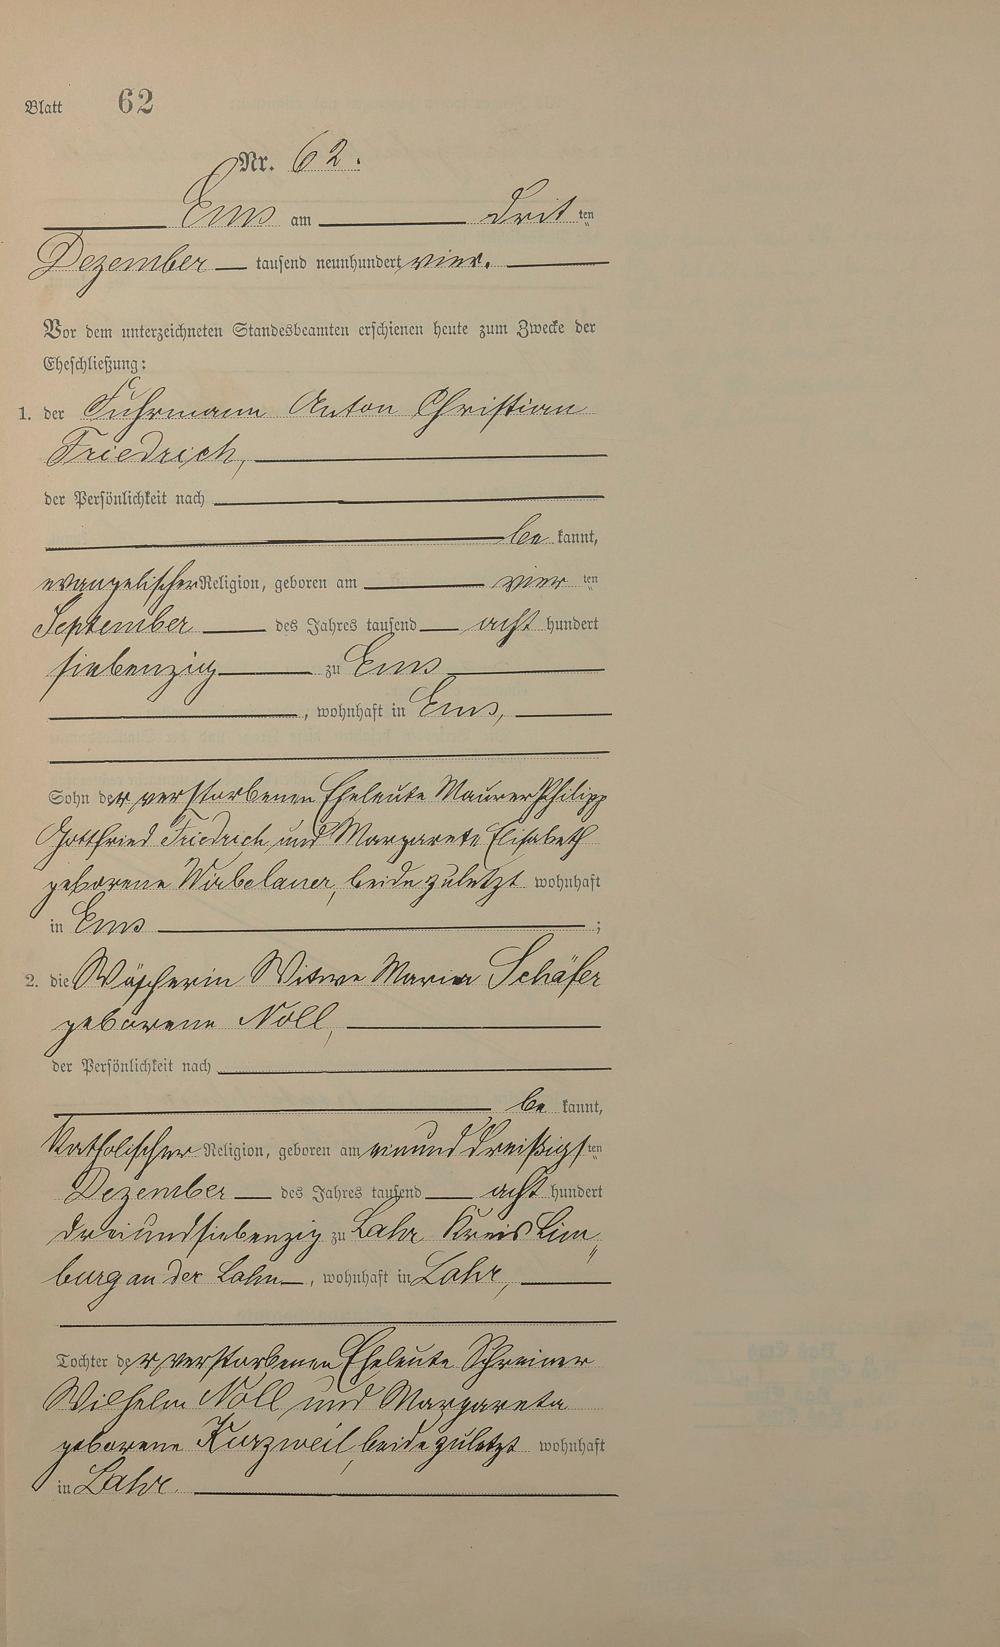 Blatt 62
Nr. 62.
Ems am drit ten
Dezember tausend neunhundert vier.
Vor dem unterzeichneten Standesbeamten erschienen heute zum Zwecke der
Eheschließung:
1. der Fuhrmann Anton Christian
Friedrich,
der Persönlichkeit nach
be kannt,
evangelischer Religion, geboren am vier ten
September des Jahres tausend acht hundert
siebenzig zu Ems
, wohnhaft in Ems,
Sohn der verstorbenen Eheleute Maurer Philipp
Gottfried Friedrich und Margarete Elisabeth
geborene Wirbelauer, beide zuletzt wohnhaft
in Ems ;
2. die Wäscherin Witwe Maria Schäfer
geborene Noll,
der Persönlichkeit nach
be kannt,
katholischer Religion, geboren am einunddreißigs ten
Dezember des Jahres tausend acht hundert
dreiundsiebenzig zu Lahr Kreis Lim„
burg an der Lahn , wohnhaft in Lahr,
Tochter der verstorbenen Eheleute Schreiner
Wilhelm Noll und Margareta
geborene Kurzweil, beide zuletzt wohnhaft
in Lahr.